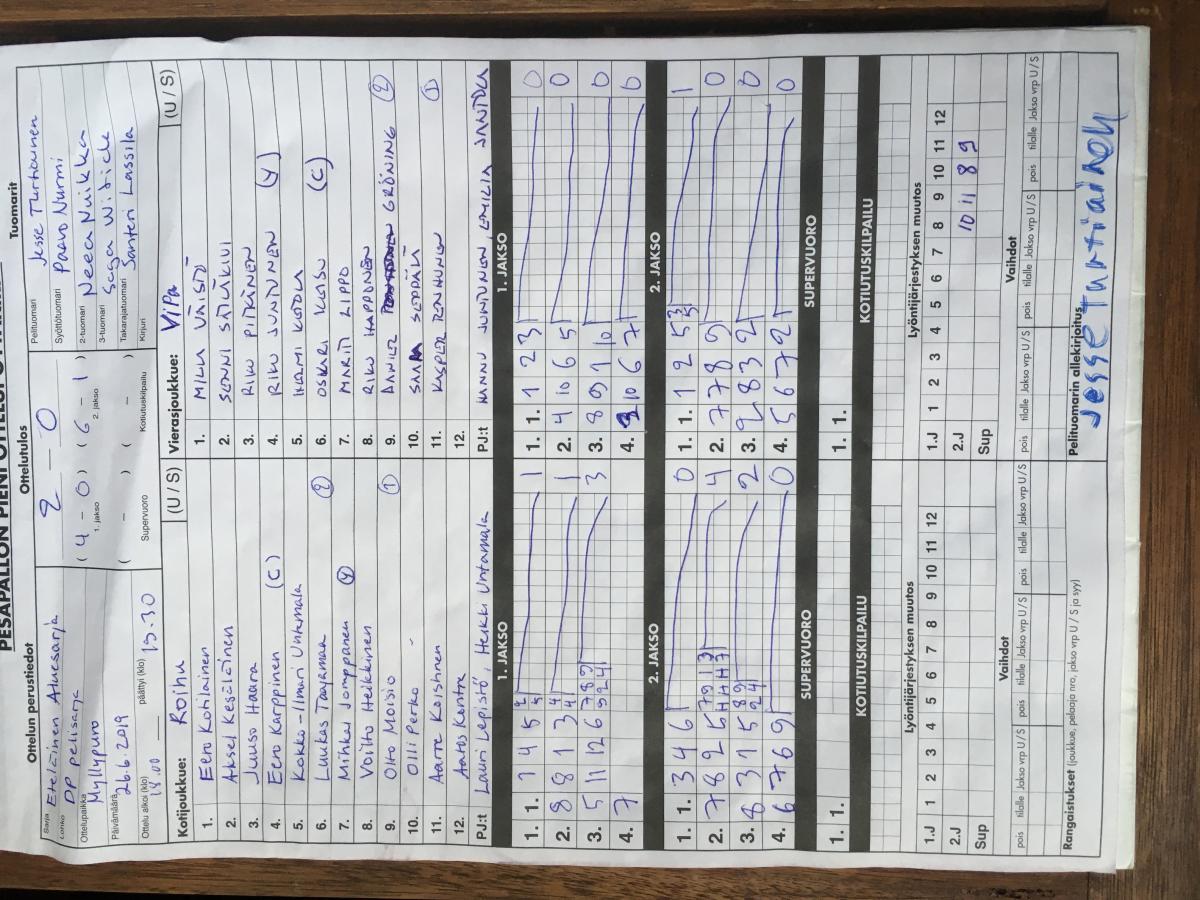 PESÄPALLON PIENI OTTELUPÖYTÄKIRJA
Ottelun perustiedot
Ottelutulos
Tuomarit
Sarja Eteläinen Aluesarja
Lohko DP pelisarja
Ottelupaikka
Myllypuro
Päivämäärä
26.6.2019
Ottelu alkoi (klo) päättyi (klo) 19.30
18.00
2 — 0
(4 - 0) (6 - 1)
1. jakso 2. jakso
( - ) ( - )
Supervuoro Kotiutuskilpailu
Pelituomari Jesse Turtiainen
Syöttötuomari Paavo Nurmi
2-tuomari Neeca Nuikka
3-tuomari Saga
Takarajatuomari Santeri Lassila
Kirjuri
Kotijoukkue: Roihu (U / S)
1. Eero Kotilainen
2. Aksel Kesäläinen
3. Juuso Haara
4. Eero Karppinen (C)
5. Kokko-Ilmari Untamala
6. Luukas Taajamaa 2
7. Mihkel Jomppanen V
8. Voitto Heikkinen
9. Otto Moisio 1
10. Olli Perko
11. Aarre Koistinen
12. Aatos Kontra
PJ:t Lauri Lepistö, Heikki Untamala
Vierasjoukkue: ViPa (U / S)
1. MILLA VÄISTÖ
2. SENNI SÄLLÄKIVI
3. RIKU PITKÄNEN
4. RIKU JUNTUNEN (V)
5. HELMI KOTKA
6. OSKARI KUISU (C)
7. MARIO LIPPO
8. RIKU HAPPONEN
9. DANIEL GRÖNING 2
10. SAARA SEPPÄLÄ
11. KASPER RONKUNEN 1
12.
PJ:t HANNU JUNTUNEN, EMILIA
1. JAKSO
1. 1. 1 4 5 1
2. 8 8 1 3 4 1
3. 5 11 12 6 7 8 9 3
4. 7
1. JAKSO
1. 1. 1 2 3 0
2. 4 10 6 5 0
3. 8 9 1 10 0
4. 3 10 6 7 0
2. JAKSO
1. 1. 3 4 6 0
2. 7 8 9 2 5 7 9 1 3 4
3. 8 3 1 5 8 9 2
4. 6 7 6 9 0
2. JAKSO
1. 1. 1 2 5 3 1
2. 7 7 8 9 0
3. 9 8 3 2 0
4. 5 6 7 2 0
SUPERVUORO
1. 1.
SUPERVUORO
1. 1.
KOTIUTUSKILPAILU
KOTIUTUSKILPAILU
Lyöntijärjestyksen muutos
1.J 1 2 3 4 5 6 7 8 9 10 11 12
2.J
Sup
Lyöntijärjestyksen muutos
1.J 1 2 3 4 5 6 7 8 9 10 11 12
2.J 10 11 8 9
Sup
Vaihdot
pois tilalle Jakso vrp U / S pois tilalle Jakso vrp U / S pois tilalle Jakso vrp U / S
Vaihdot
pois tilalle Jakso vrp U / S pois tilalle Jakso vrp U / S pois tilalle Jakso vrp U / S
Rangaistukset (joukkue, pelaaja nro, jakso vrp U / S ja syy)
Pelituomarin allekirjoitus
Jesse Turtiainen